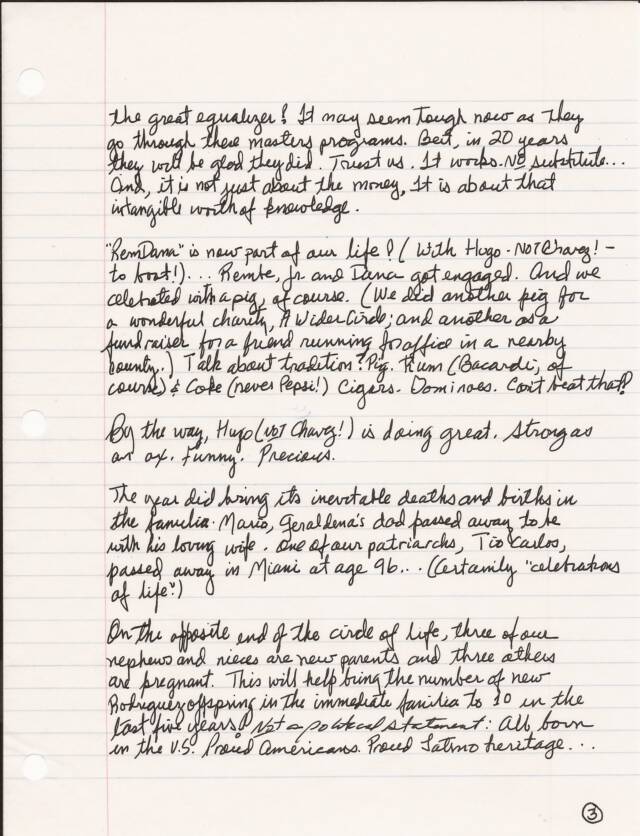 the great equalizer! It may seem tough now as they
go through these masters programs. But, in 20 years
they will be glad they did. Trust us. It works. No substitute...
And, it is not just about the money, It is about that
intangible worth of knowledge.
"RemDana" is now part of our life! (With Hugo - NOT Chavez! -
to boot!)... Rembe, Jr. and Dana got engaged. And we
celebrated with a pig, of course. (We did another pig for
a wonderful charity, A Wider Circle; and another as a
fundraiser for a friend running for office in a nearby
county.) Talk about tradition! Pig. Rum (Bacardi, of
course) & Coke (never Pepsi!) Cigars. Dominoes. Can't beat that!
By the way, Hugo (NOT Chavez!) is doing great. Strong as
an ox. Funny. Precious.
The year did bring its inevitable deaths and births in
the familia. Mario, Geraldena's dad passed away to be
with his loving wife. One of our patriarchs, Tio Carlos,
passed away in Miami at age 96... (Certainly "celebrations
of life".)
On the opposite end of the circle of life, three of our
nephews and nieces are new parents and three others
are pregnant. This will help bring the number of new
Rodriguez offspring in the immediate familia to 10 in the
last five years! Not a political statement: All born
in the U.S. Proud Americans. Proud Latino heritage...
3